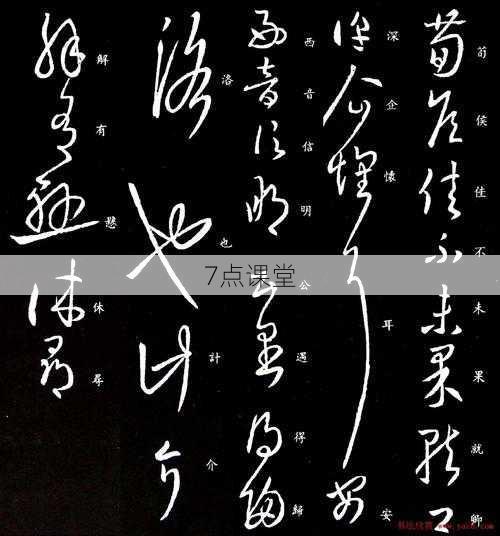 荀侯佳不未果就卿
深企懷耳安
西音信明公遇得歸
洛也計介
解有懸休尋
7点课堂